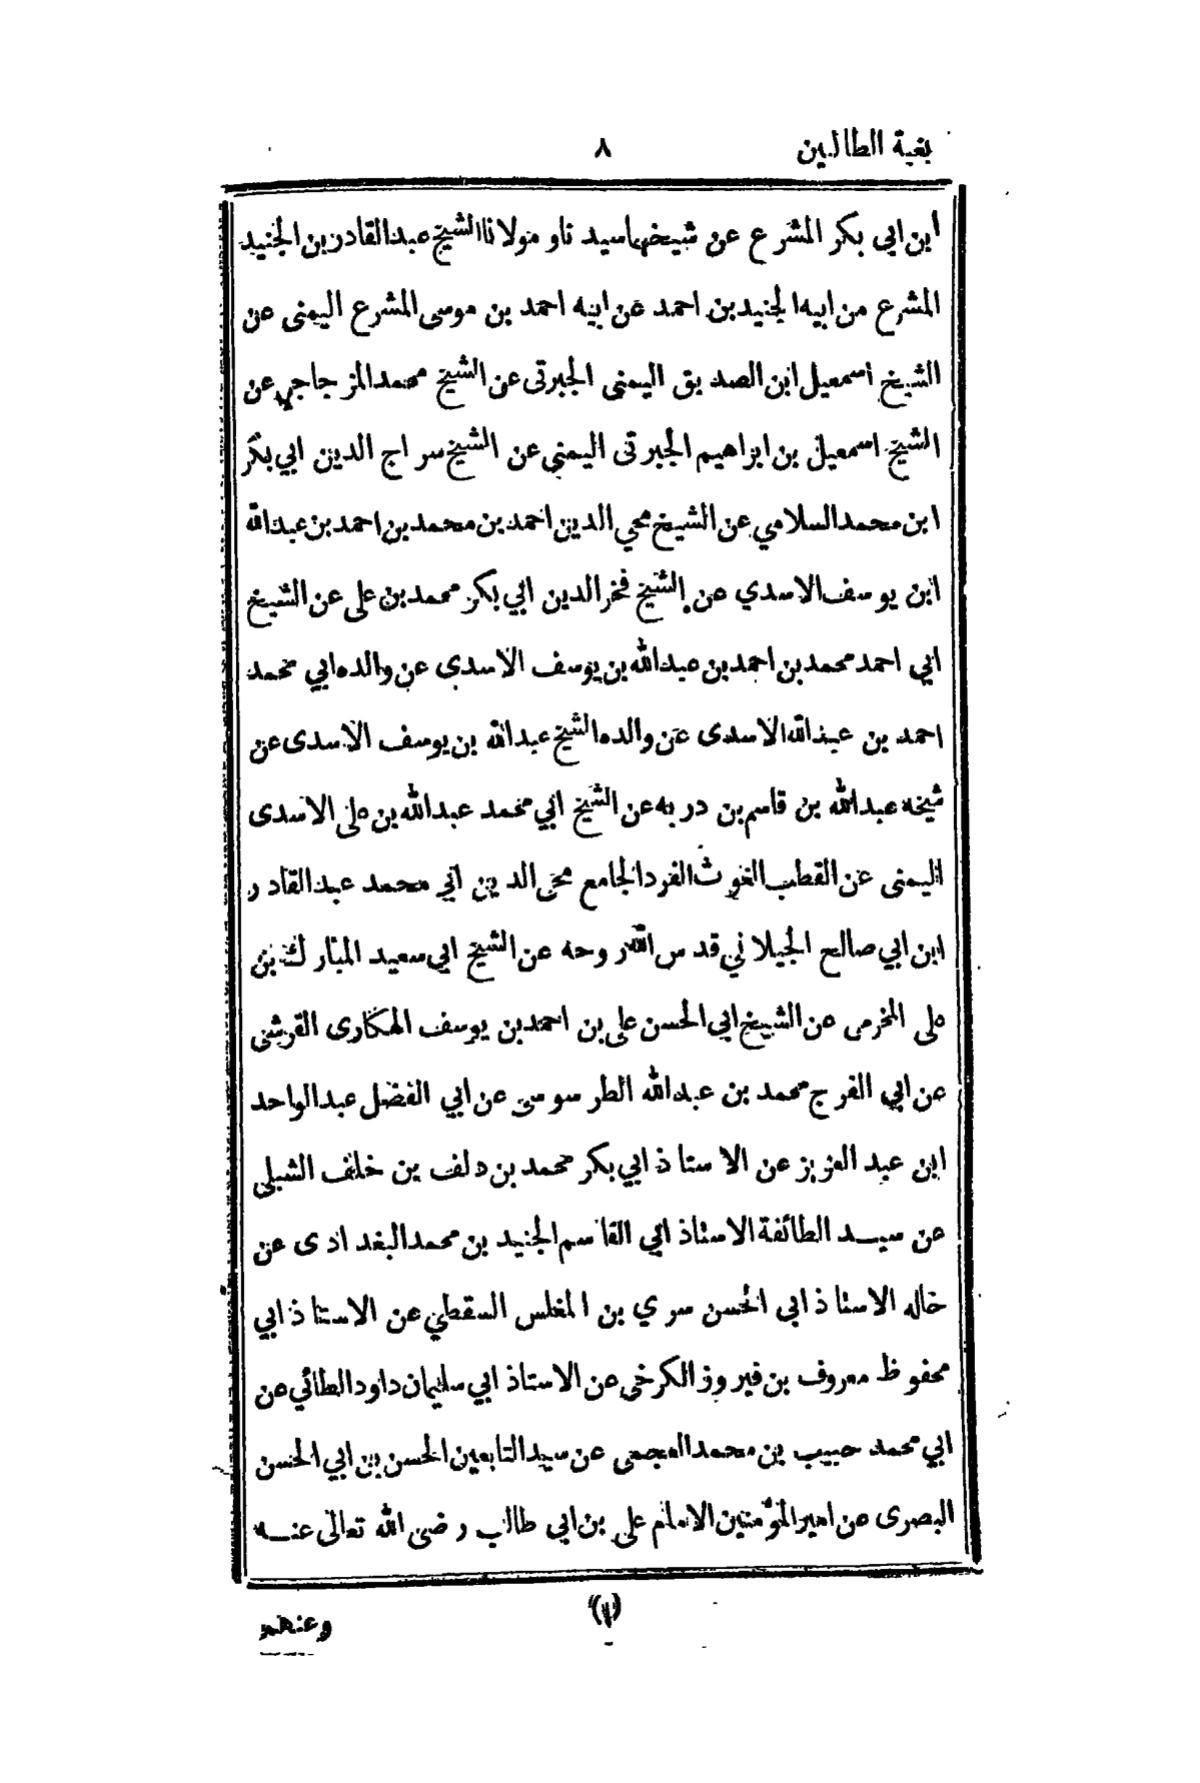 بغية الطالبين
٨
ابن ابى بكر المشرع عن شيخهاسيد ناو مولاناالشيخ عبدالقادر بن الجنيد
المشرع من ابيه الجنيد بن احمد عن ابيه احمد بن موسى المشرع اليمنى عن
الشيخ اسمعيل ابن الصديق اليمنى الجبرتى عن الشيخ محمد المزجاجي عن
الشيخ اسمعيل بن ابراهيم الجبرتى اليمني عن الشيخ سراج الدين ابي بكر
ابن محمد السلامي عن الشيخ محي الدين احمد بن محمد بن احمد بن عبدالله
ابن يوسف الاسدي عن الشيخ فخر الدين ابي بكر محمد بن على عن الشيخ
ابي احمد محمد بن احمد بن عبدالله بن يوسف الاسدى عن والده ابي محمد
احمد بن عبدالله الاسدى عن والده الشيخ عبدالله بن يوسف الاسدى عن
شيخه عبدالله بن قاسم بن دربه عن الشيخ ابي محمد عبدالله بن على الاسدى
اليمنى عن القطب الغوث الفرد الجامع محى الدين ابي محمد عبد القادر
ابن ابي صالح الجيلاني قدس الله روحه عن الشيخ ابي سعيد المبارك بن
على المخرمى عن الشيخ ابي الحسن على بن احمد بن يوسف الهكارى القرشى
عن ابي الفرج محمد بن عبدالله الطرسوسى عن ابي الفضل عبد الواحد
ابن عبد العزيز عن الاستاذ ابي بكر محمد بن دلف بن خلف الشبلى
عن سيد الطائفة الاستاذ ابي القاسم الجنيد بن محمد البغدادى عن
خاله الاستاذ ابى الحسن سري بن المغلس السقطي عن الاستاذ ابي
محفوظ معروف بن فيروز الكرخى عن الاستاذ ابي سليمان داود الطائي عن
ابي محمد حبيب بن محمد العجمى عن سيد التابعين الحسن بن ابي الحسن
البصرى عن امير المؤمنين الامام على بن ابي طالب رضى الله تعالى عنه
(١)
وعنهم